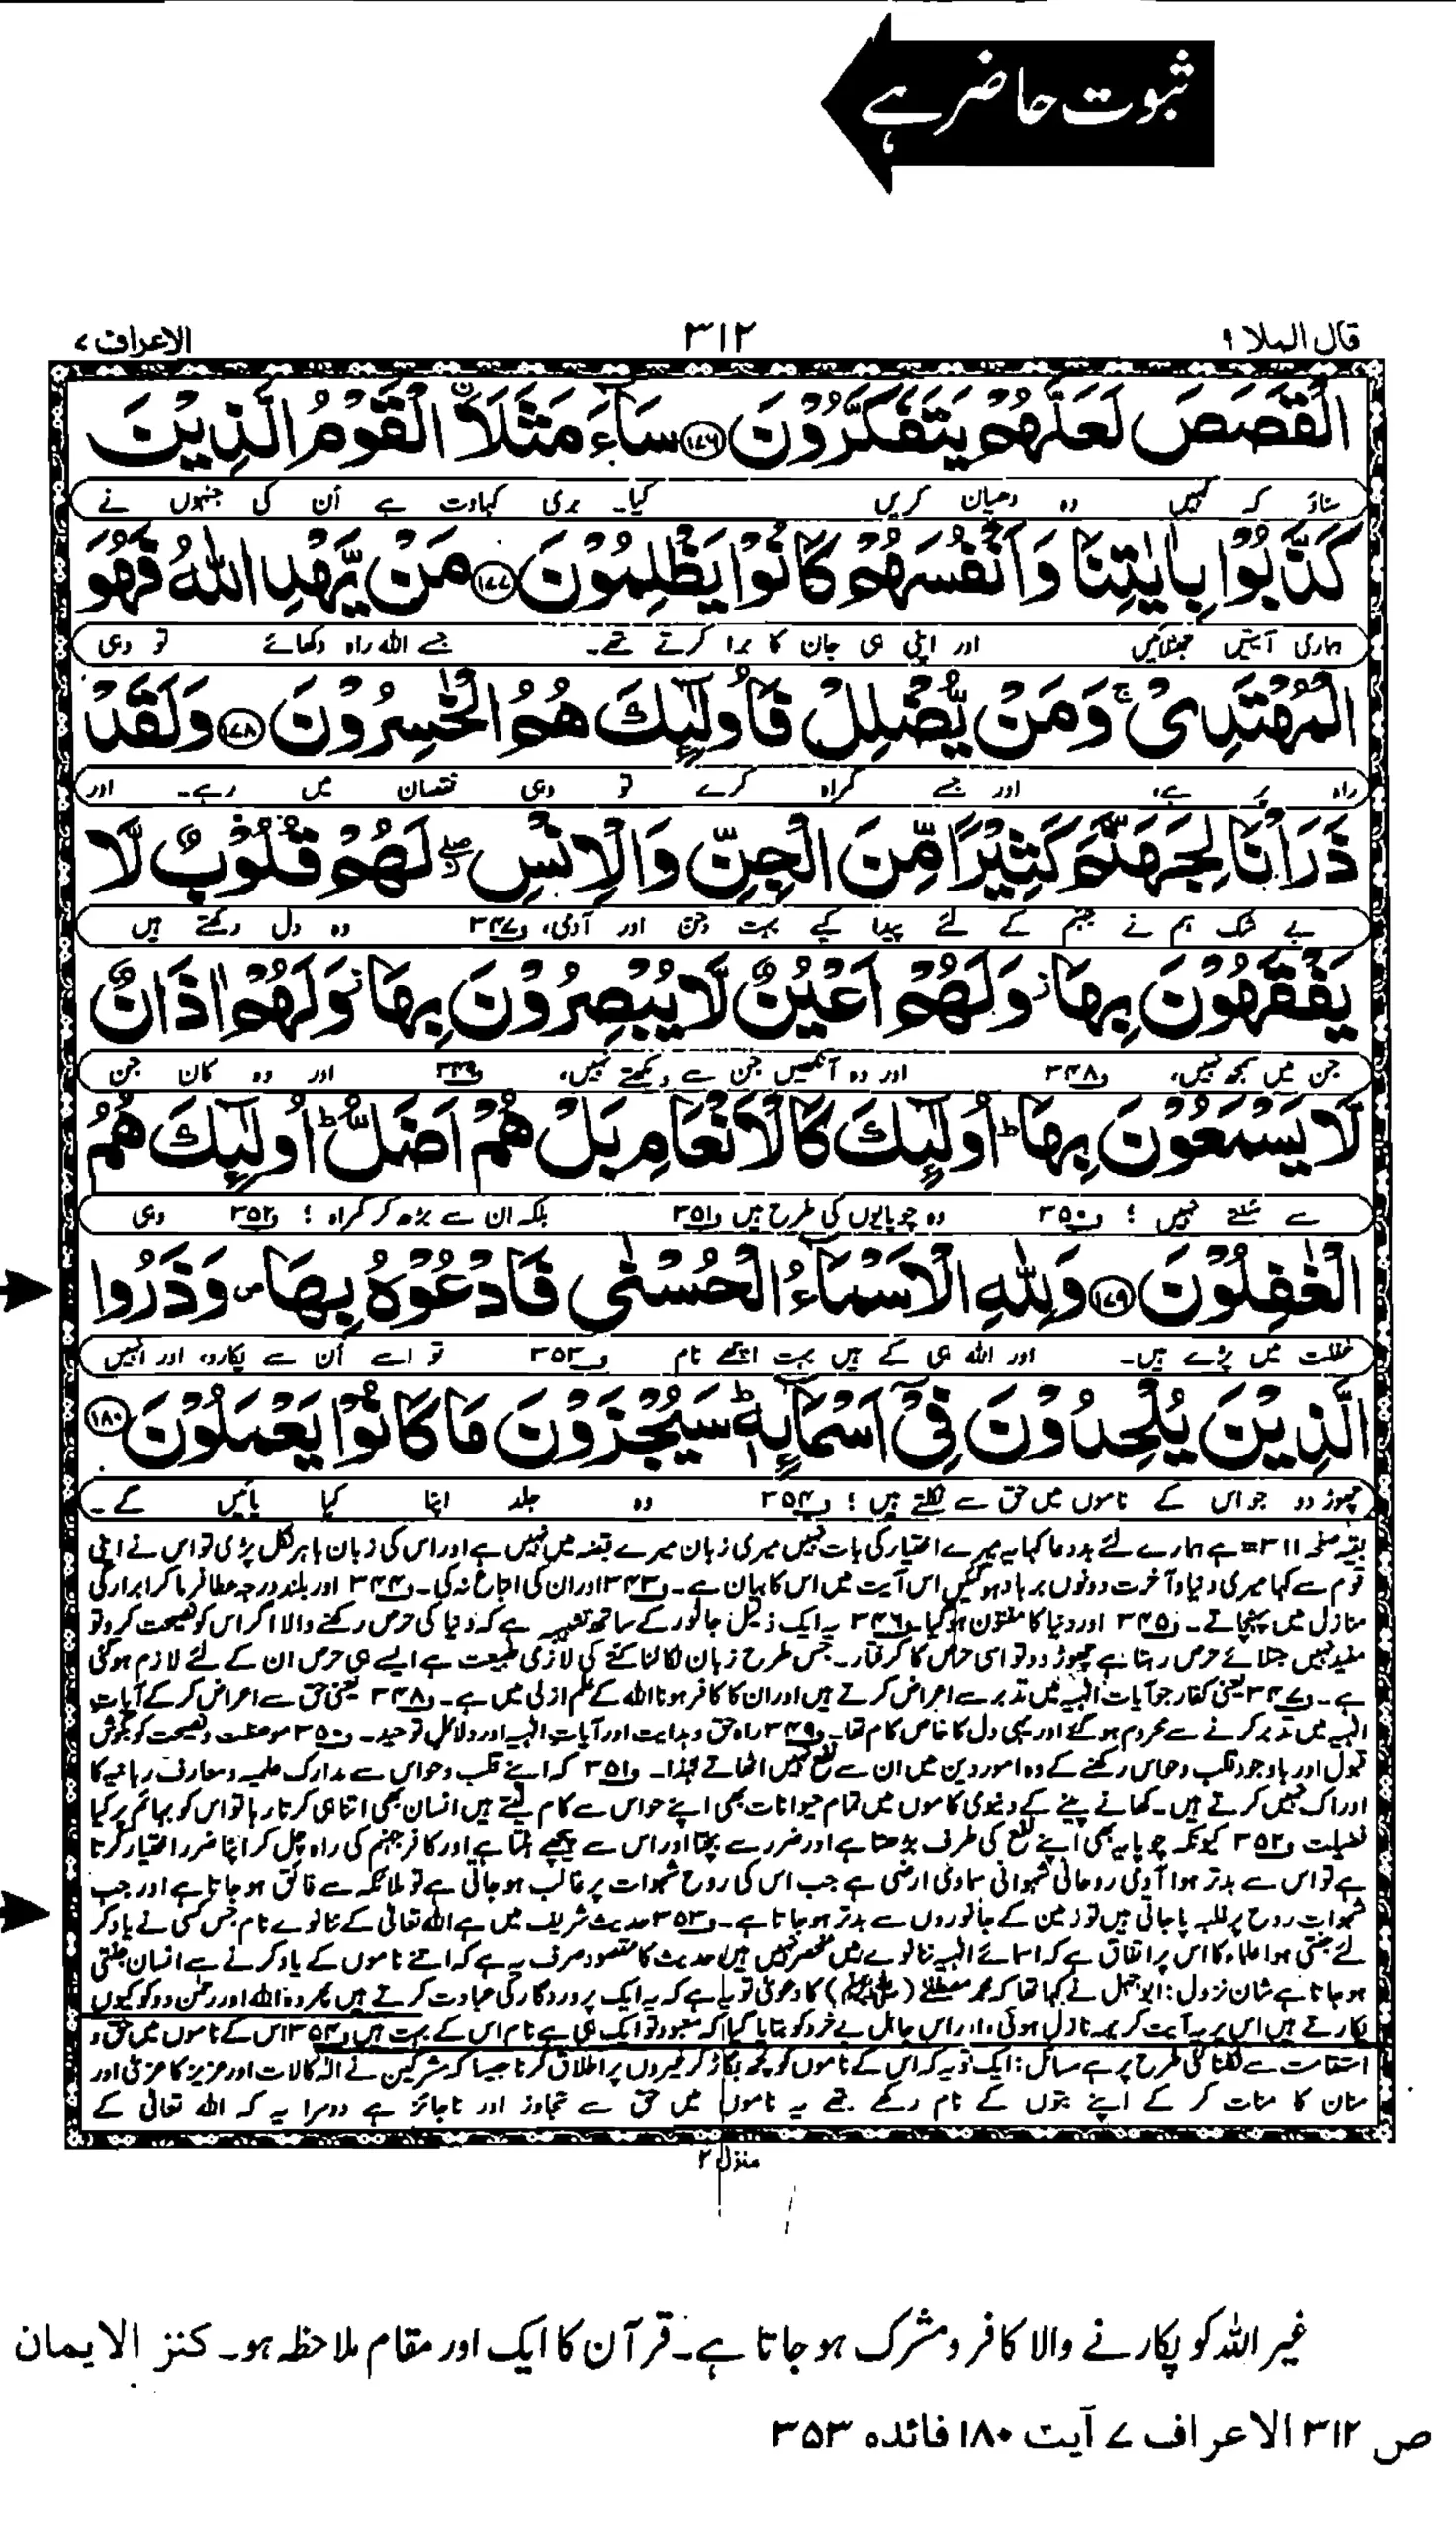 ثبوت حاضر ہے
قال الملا ۹ ۳۱۲ الاعراف ۷
الْقَصَصَ لَعَلَّهُمْ يَتَفَكَّرُوْنَ ۝۱۷۶ سَآءَ مَثَلَاۨ الْقَوْمُ الَّذِيْنَ
سناؤ کہ کہیں وہ دھیان کریں کیا۔ بری کہاوت ہے اُن کی جنہوں نے
كَذَّبُوْا بِاٰيٰتِنَا وَاَنْفُسَهُمْ كَانُوْا يَظْلِمُوْنَ ۝۱۷۷ مَنْ يَّهْدِ اللّٰهُ فَهُوَ
ہماری آیتیں جھٹلائیں اور اپنی ہی جان کا برا کرتے تھے۔ جسے اللہ راہ دکھائے تو وہی
الْمُهْتَدِيْ ۚ وَمَنْ يُّضْلِلْ فَاُولٰٓئِكَ هُمُ الْخٰسِرُوْنَ ۝۱۷۸ وَلَقَدْ
راہ پر ہے، اور جسے گمراہ کرے تو وہی نقصان میں رہے۔ اور
ذَرَاْنَا لِجَهَنَّمَ كَثِيْرًا مِّنَ الْجِنِّ وَالْاِنْسِ ۖ لَهُمْ قُلُوْبٌ لَّا
بے شک ہم نے جہنم کے لئے پیدا کیے بہت جن اور آدمی، ف۳۴۷ وہ دل رکھتے ہیں
يَفْقَهُوْنَ بِهَا ۫ وَلَهُمْ اَعْيُنٌ لَّا يُبْصِرُوْنَ بِهَا ۫ وَلَهُمْ اٰذَانٌ
جن میں سمجھ نہیں، ف۳۴۸ اور وہ آنکھیں جن سے دیکھتے نہیں، ف۳۴۹ اور وہ کان جن
لَّا يَسْمَعُوْنَ بِهَا ؕ اُولٰٓئِكَ كَالْاَنْعَامِ بَلْ هُمْ اَضَلُّ ؕ اُولٰٓئِكَ هُمُ
سے سنتے نہیں ؛ ف۳۵۰ وہ چوپایوں کی طرح ہیں ف۳۵۱ بلکہ ان سے بڑھ کر گمراہ ؛ ف۳۵۲ وہی
الْغٰفِلُوْنَ ۝۱۷۹ وَلِلّٰهِ الْاَسْمَآءُ الْحُسْنٰى فَادْعُوْهُ بِهَا ۪ وَذَرُوا
غفلت میں پڑے ہیں۔ اور اللہ ہی کے ہیں بہت اچھے نام ف۳۵۳ تو اسے اُن سے پکارو، اور انہیں
الَّذِيْنَ يُلْحِدُوْنَ فِيْٓ اَسْمَآئِهٖ ؕ سَيُجْزَوْنَ مَا كَانُوْا يَعْمَلُوْنَ ۝۱۸۰
چھوڑ دو جو اس کے ناموں میں حق سے نکلتے ہیں ؛ ف۳۵۴ وہ جلد اپنا کیا پائیں گے۔
بقیہ صفحہ ۳۱۱= ہے ہمارے لئے بددعا کہا یہ میرے اختیار کی بات نہیں میری زبان میرے قبضہ میں نہیں ہے اور اس کی زبان باہر نکل پڑی تو اس نے اپنی
قوم سے کہا میری دنیا و آخرت دونوں برباد ہو گئیں اس آیت میں اس کا بیان ہے۔ ف۳۴۳ اور ان کی اتباع نہ کی۔ ف۳۴۴ اور بلند درجہ عطا فرما کر ابرار کی
منازل میں پہنچاتے۔ ف۳۴۵ اور دنیا کا مفتون ہو گیا۔ ف۳۴۶ یہ ایک ذلیل جانور کے ساتھ تشبیہ ہے کہ دنیا کی حرص رکھنے والا اگر اس کو نصیحت کرو تو
مفید نہیں مبتلائے حرص رہتا ہے چھوڑ دو تو اسی حرص کا گرفتار۔ جس طرح زبان نکالنا کتے کی لازمی طبیعت ہے ایسے ہی حرص ان کے لئے لازم ہو گئی
ہے۔ ف۳۴۷ یعنی کفار جو آیات الٰہیہ میں تدبر سے اعراض کرتے ہیں اور ان کا کافر ہونا اللہ کے علم ازلی میں ہے۔ ف۳۴۸ یعنی حق سے اعراض کر کے آیات
الٰہیہ میں تدبر کرنے سے محروم ہو گئے اور یہی دل کا خاص کام تھا۔ ف۳۴۹ راہ حق و ہدایت اور آیات الٰہیہ اور دلائل توحید۔ ف۳۵۰ موعظت و نصیحت کو بگوش
قبول اور باوجود قلب و حواس رکھنے کے وہ امور دین میں ان سے نفع نہیں اٹھاتے لہٰذا۔ ف۳۵۱ کہ اپنے قلب و حواس سے مدارک علمیہ و معارف ربانیہ کا
ادراک نہیں کرتے ہیں۔ کھانے پینے کے دنیوی کاموں میں تمام حیوانات بھی اپنے حواس سے کام لیتے ہیں انسان بھی اتنا ہی کرتا رہا تو اس کو بہائم پر کیا
فضیلت ف۳۵۲ کیونکہ چوپایہ بھی اپنے نفع کی طرف بڑھتا ہے اور ضرر سے بچتا اور اس سے پیچھے ہٹتا ہے اور کافر جہنم کی راہ چل کر اپنا ضرر اختیار کرتا
ہے تو اس سے بدتر ہوا آدمی روحانی شہوانی سماوی ارضی ہے جب اس کی روح شہوات پر غالب ہو جاتی ہے تو ملائکہ سے فائق ہو جاتا ہے اور جب
شہوات روح پر غلبہ پا جاتی ہیں تو زمین کے جانوروں سے بدتر ہو جاتا ہے۔ ف۳۵۳ حدیث شریف میں ہے اللہ تعالیٰ کے ننانوے نام جس کسی نے یاد کر
لئے جنتی ہوا علماء کا اس پر اتفاق ہے کہ اسمائے الٰہیہ ننانوے میں منحصر نہیں ہیں حدیث کا مقصود صرف یہ ہے کہ اتنے ناموں کے یاد کرنے سے انسان جنتی
ہو جاتا ہے شان نزول : ابوجہل نے کہا تھا کہ محمد مصطفےٰ (ﷺ) کا دعویٰ تو یہ ہے کہ یہ ایک پروردگار کی عبادت کرتے ہیں پھر وہ اللہ اور رحمٰن دو کو کیوں
پکارتے ہیں اس پر یہ آیت کریمہ نازل ہوئی، اور اس جاہل بے خرد کو بتایا گیا کہ معبود تو ایک ہی ہے نام اس کے بہت ہیں ف۳۵۴ اس کے ناموں میں حق و
استقامت سے نکلنا کئی طرح پر ہے مسائل : ایک تو یہ کہ اس کے ناموں کو کچھ بگاڑ کر غیروں پر اطلاق کرنا جیسا کہ مشرکین نے الٰہ کا لات اور عزیز کا عزیٰ اور
منان کا منات کر کے اپنے بتوں کے نام رکھے تھے یہ ناموں میں حق سے تجاوز اور ناجائز ہے دوسرا یہ کہ اللہ تعالیٰ کے
منزل ۲
غیر اللہ کو پکارنے والا کافر و مشرک ہو جاتا ہے۔ قرآن کا ایک اور مقام ملاحظہ ہو۔ کنز الایمان
ص ۳۱۲ الاعراف ۷ آیت ۱۸۰ فائدہ ۳۵۳